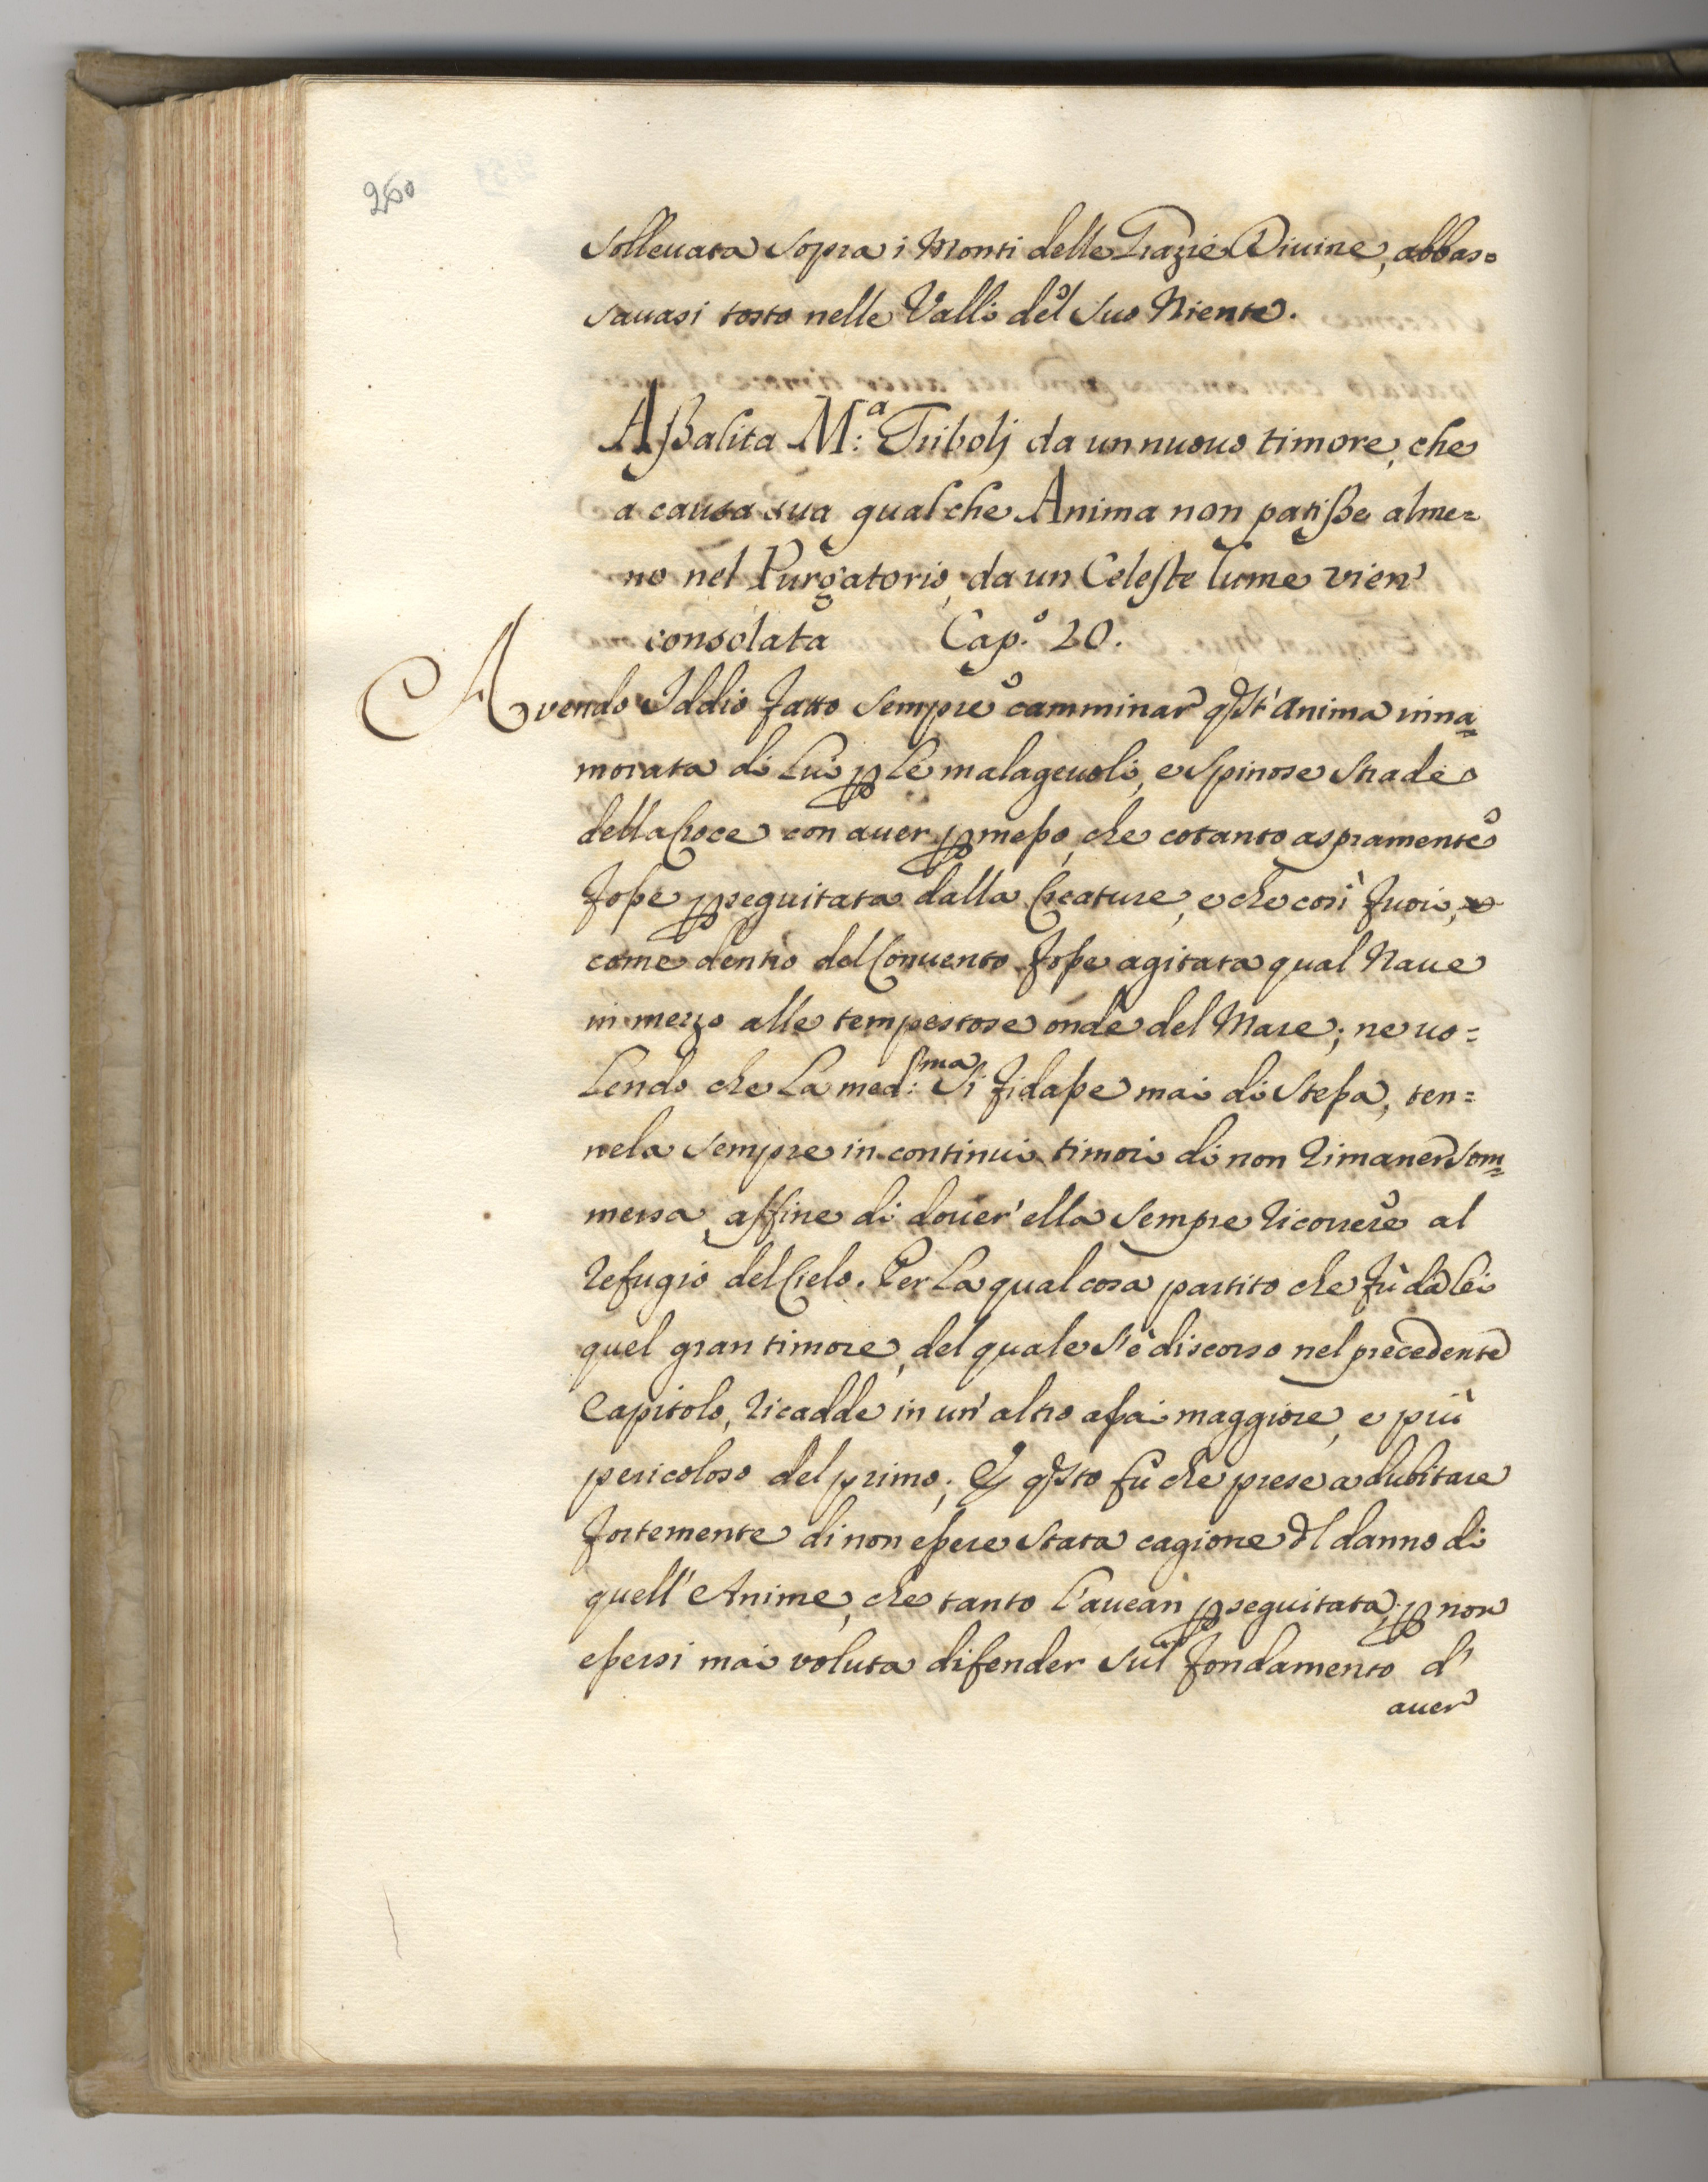 260
solleuata sopra i Monti delle Grazie Diuine, abbas=
sauasi tosto nelle Valli del suo Niente.
Aßalita M:ᵃ Triboli da un nuouo timore, che
a causa sua qualche Anima non patiße alme=
no nel Purgatorio, da un Celeste lume vien'
consolata Cap.º 20.
Avendo Iddio fatto sempre camminar qst' anima inna=
morata di Lui ꝑ le malageuoli, e spinose strade
della Croce con auer ꝑmeßo, che cotanto aspramente
foße ꝑseguitata dalla Creature, e che così fuori,
come dentro del Conuento foße agitata qual Naue
in mezzo alle tempestose onde del Mare; ne uo=
lendo che la med:ᵐᵃ si fidaße mai di steßa, ten=
nela sempre in continui timori di non rimaner som=
mersa, affine di douer' ella sempre ricorrere al
refugio del Cielo. Per la qual cosa partito che fù da lei
quel gran timore, del quale s'è discorso nel precedente
Capitolo, ricadde in un' altro aßai maggiore, e più
pericoloso del primo; E qsto fù che prese a dubitare
fortemente di non eßere stata cagione dl danno di
quell' Anime, che tanto l'auean ꝑseguitata; ꝑ non
eßersi mai voluta difender sul fondamento d'
auer